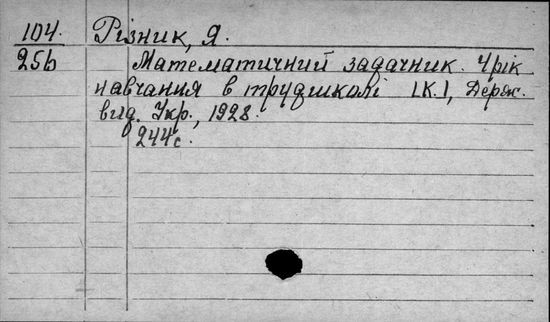 104. Різник, Я.
256 Математичний задачник. 4 рік
навчання в трудшколі [К.], Держ.
вид. Укр., 1928.
244 с.